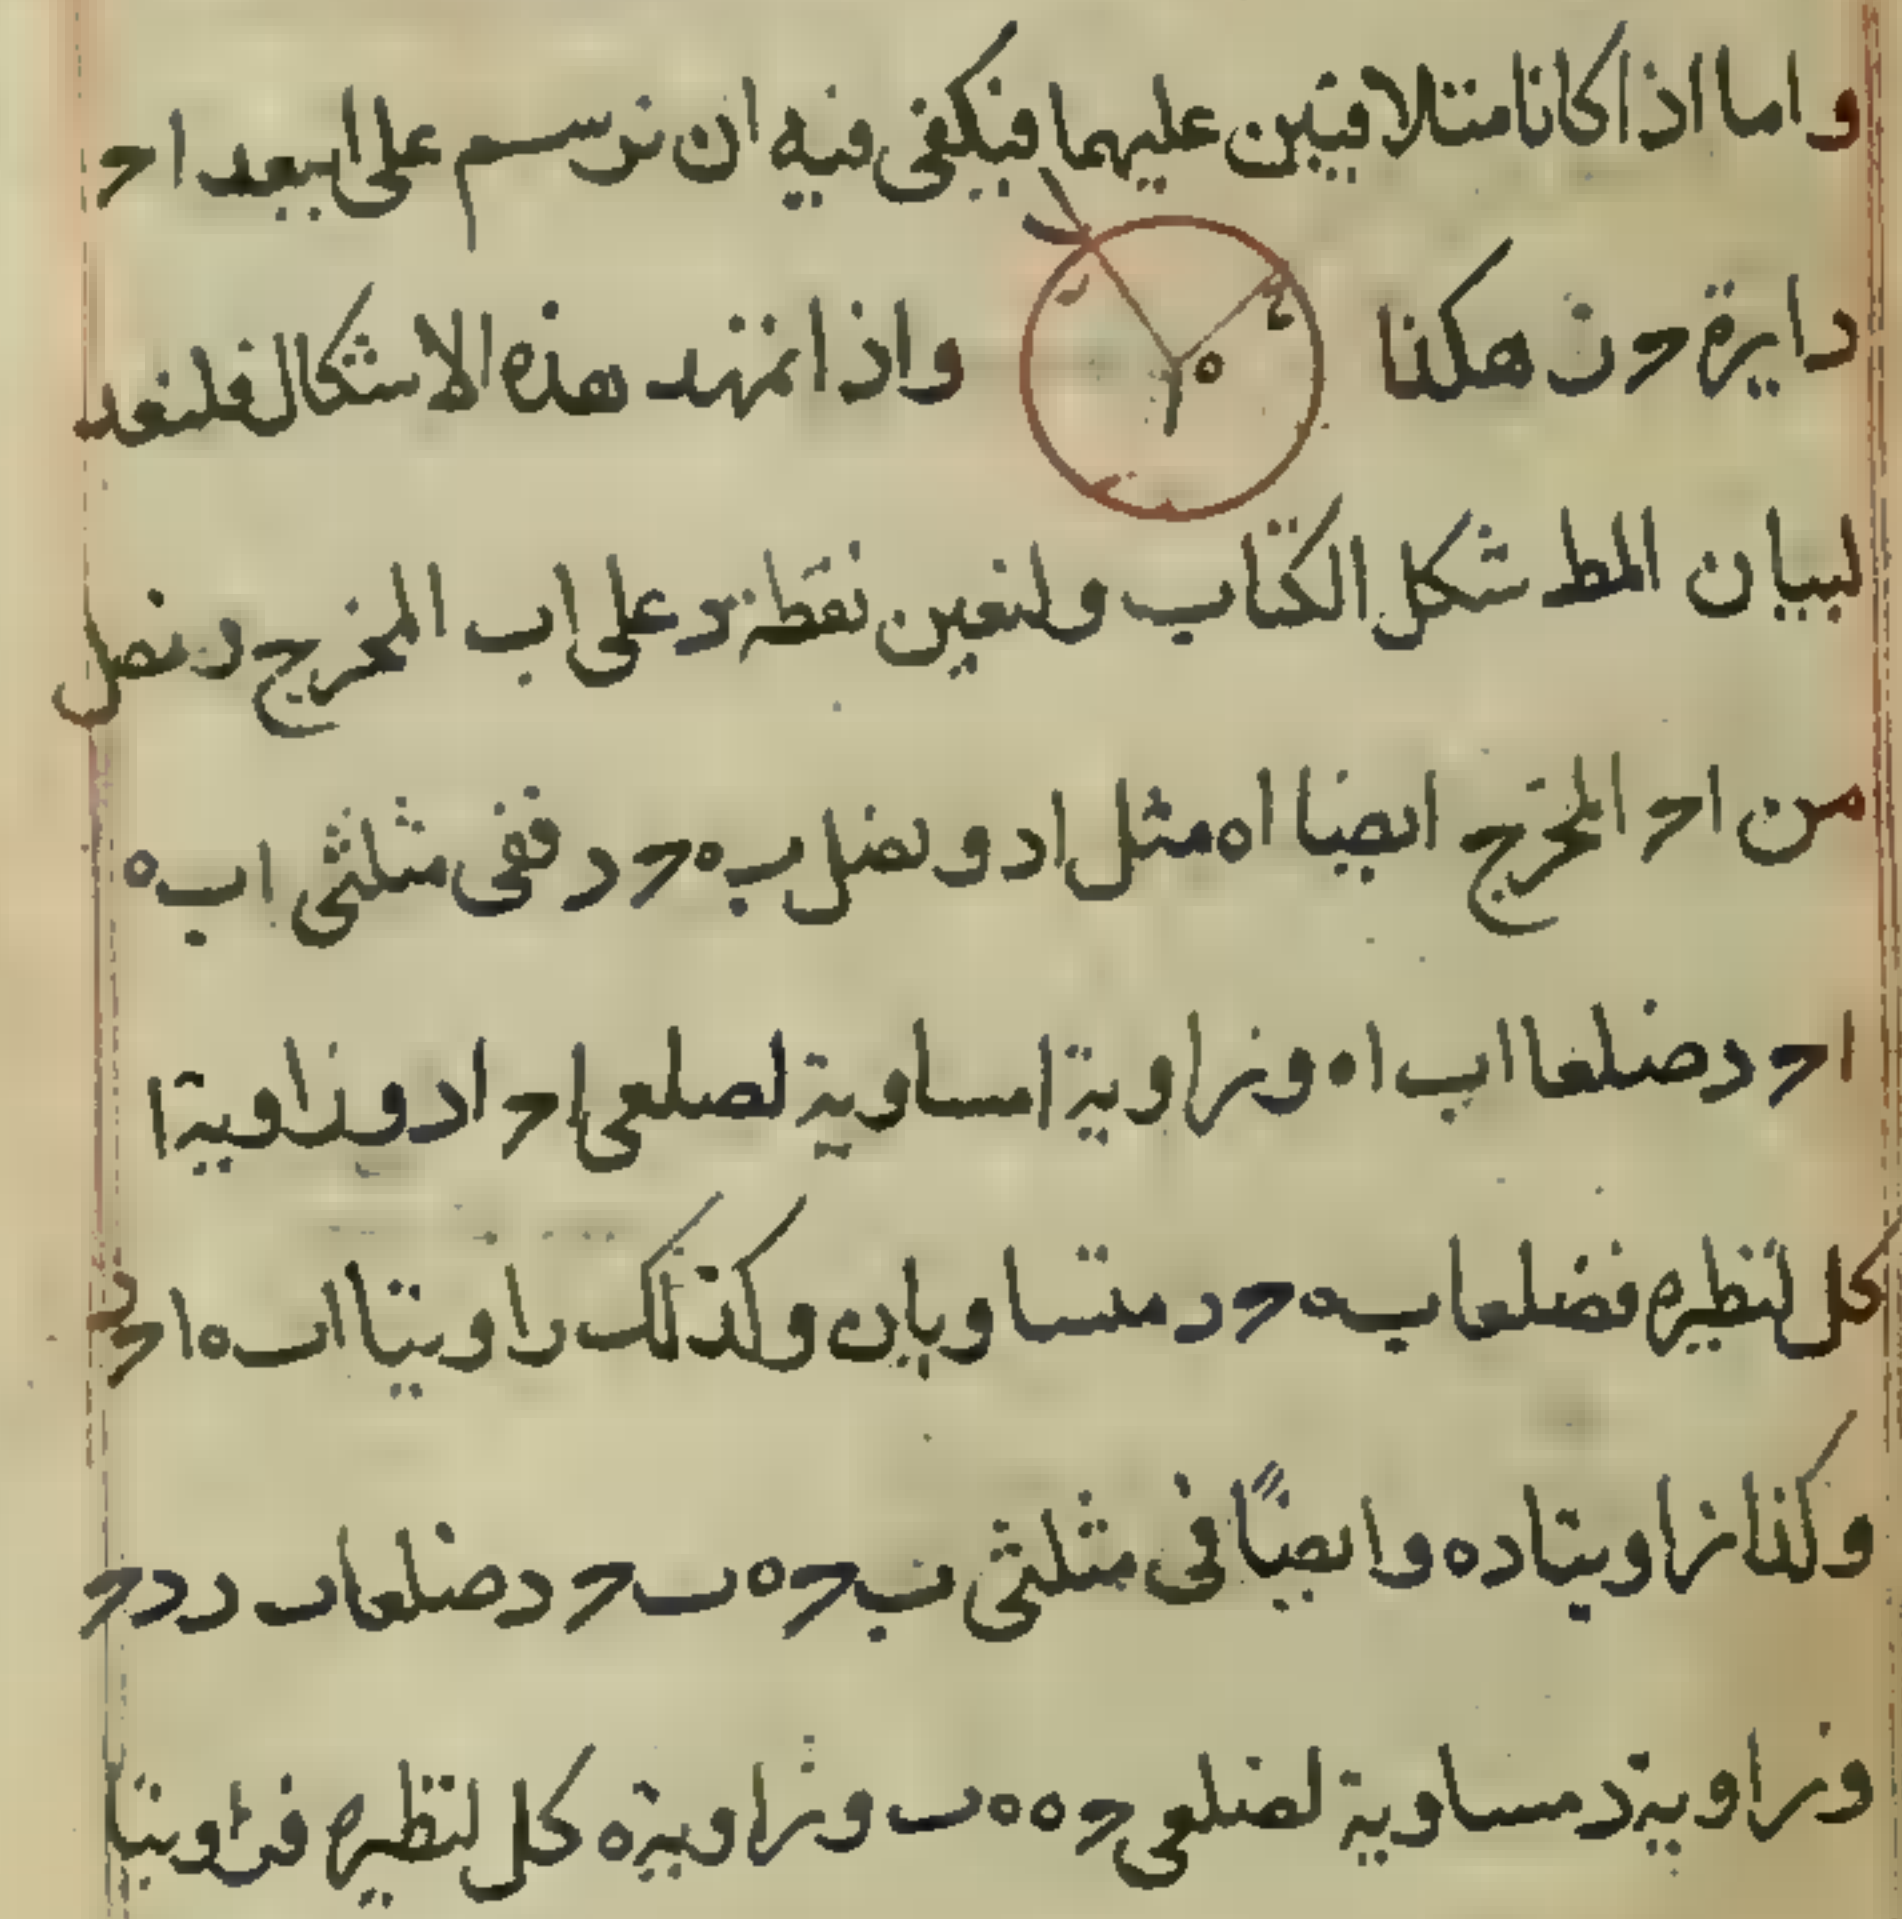 واما اذا كانا متلاقيين عليهما فيكفى فيه ان نرسم على ا ببعد ا ح
دايرة ح ن هكذا واذا تمهد هذه الاشكال فلنعد
لبيان المط شكل الكتاب ولنعين نقطة د على ا ب المخرج و نصل
من ا ح المخرج ايضا ا ه مثل ا د و نصل ب ه ح د ففى مثلثى ا ب ه
ا ح د ضلعا ا ب ا ه وزاوية ا مساوية لضلعى ا ح ا د وزاوية ا
كل لنظيره فضلعا ب ه ح د متساويان وكذلك زاويتا ا ب ه ا ح د
وكذا زاويتا د ه وايضًا فى مثلثى ب ح ه ب ح د ضلعا ب د د ح
وزاوية د مساوية لضلعى ح ه ه ب وزاوية ه كل لنظيره فزاويتا